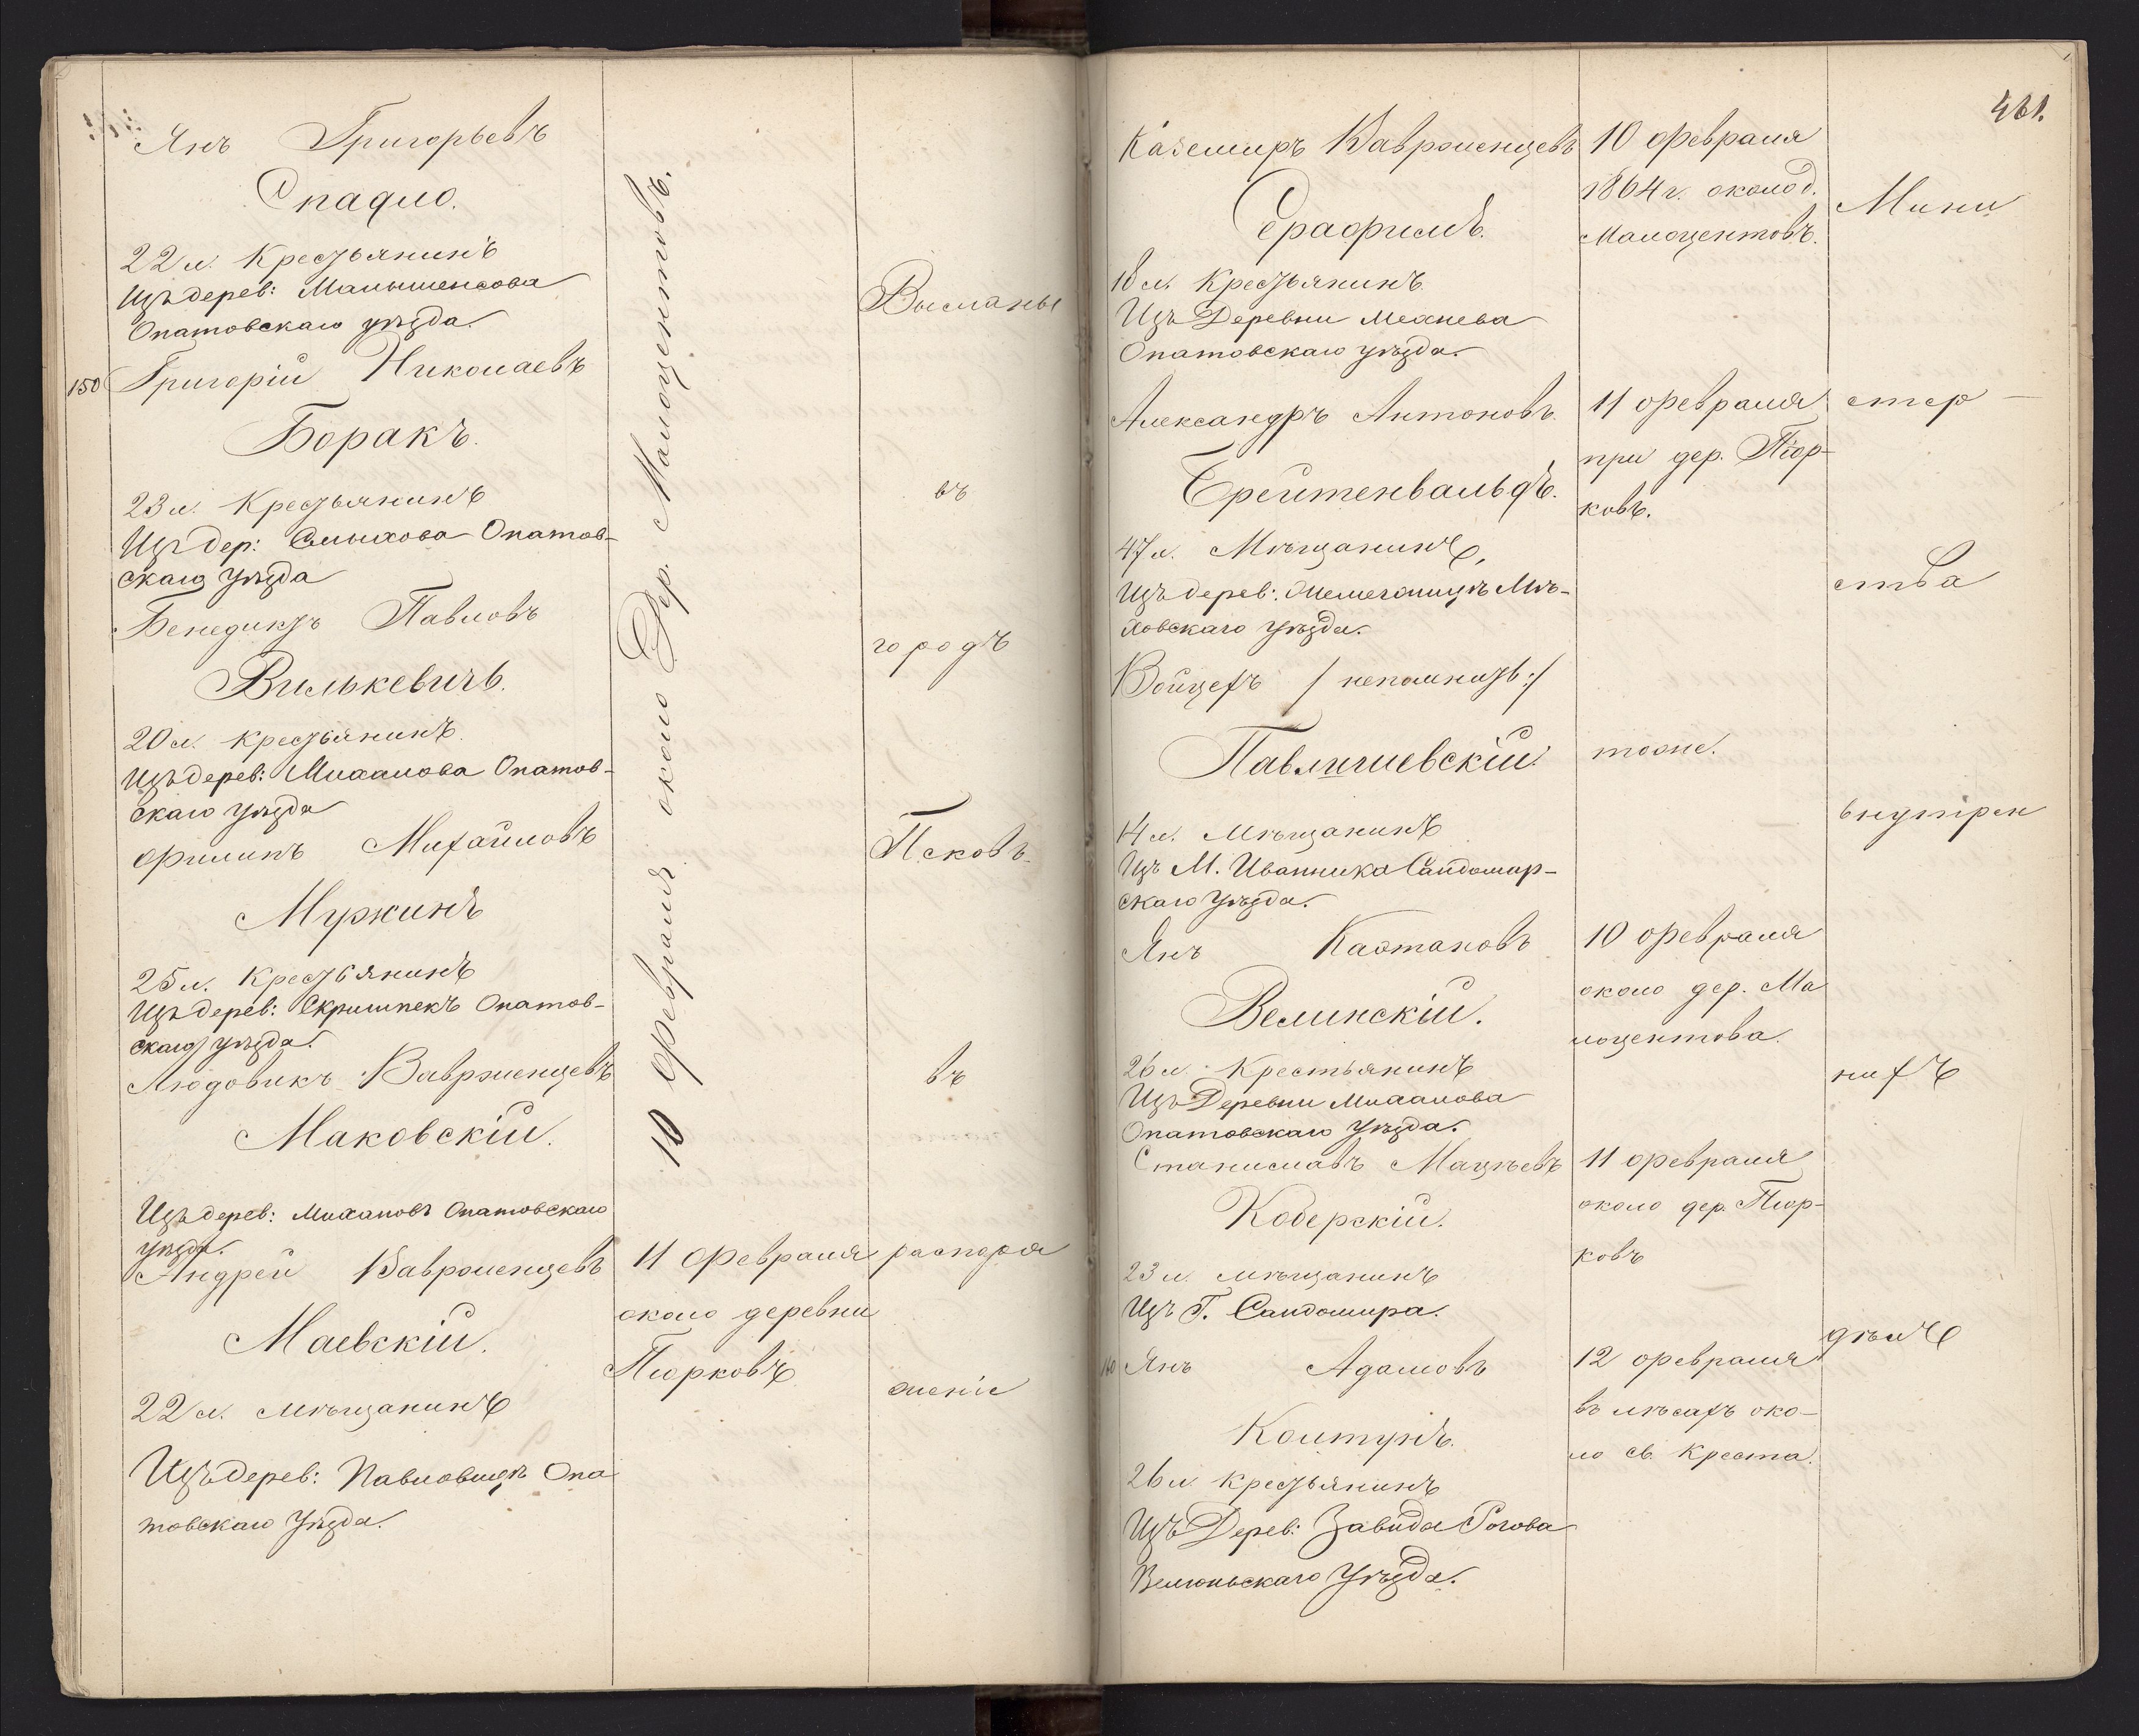 Янъ Григорьевъ
Спадло.
22 л. Крестьянинъ
Изъ дерев:
Опатовскаго уѣзда.
150 Григорій Николаевъ
Боракъ.
23 л. Крестьянинъ
Изъ дер: Слупхова Опатов-
скаго уѣзда
Бенедиктъ Павловъ
Вилькевичъ.
20 л. крестьянинъ.
Изъ дерев: Михалова Опатов-
скаго уѣзда
Филипъ Михайловъ
Муржинъ
25 л. Крестьянинъ
Изъ дерев: Опатов-
скаго уѣзда.
Людовикъ Вавржинцевъ
Маковскій.
Изъ дерев: Михаловъ Опатовскаго
уѣзда.
Андрей Вавржинцевъ
Маевскій.
22 л. мѣщанинъ
Изъ дерев: Павловицъ Опа
товскаго Уѣзда.
10 Февраля около Дер. Малоцентовъ.
11 Февраля
около деревни
Пюрковъ
Высланы
въ
городъ
Псковъ.
въ
распоря
женіе
461.
Каземиръ Вавржинцевъ
Серафимъ.
18 л. Крестьянинъ.
Изъ Деревни Мехнева
Опатовскаго уѣзда.
Александръ Антоновъ
Брейтенвальдъ.
47 л. Мѣщанинъ,
Изъ дерев: Мѣ-
ховскаго Уѣзда.
Войцехъ /непомнитъ:/
Павличиевскій.
14 л. Мѣщанинъ
Изъ М. Иваниска Сандомир-
скаго Уѣзда.
Янъ Каэтановъ
Велинскій.
26 л. Крестьянинъ
Изъ Деревни Михалова
Опатовскаго Уѣзда.
Станиславъ Мацѣевъ
Коберскій.
23 л. мѣщанинъ
Изъ Г. Сандомира.
160 Янъ Адамовъ
Колтунъ.
26 л. крестьянинъ
Изъ Дерев: Завида Рогова
Велюньскаго Уѣзда.
10 Февраля
1864 г. около д.
Малоцентовъ.
11 Февраля
при дер. Пюр-
ковъ.
тоже.
10 Февраля
около дер. Ма
лоцентова.
11 Февраля
около дер. Пюр-
ковъ
12 Февраля
въ лѣсахъ око-
ло св. Креста.
Мини
стер
ства
внутрен
нихъ
дѣлъ